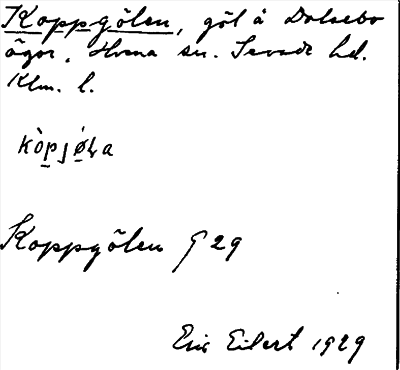 Koppgölen, göl å Dalsebo
ägor, Hvena sn. Sevede hd.
Klm. l.
Koppgölen 29
Eric Eilert 1929